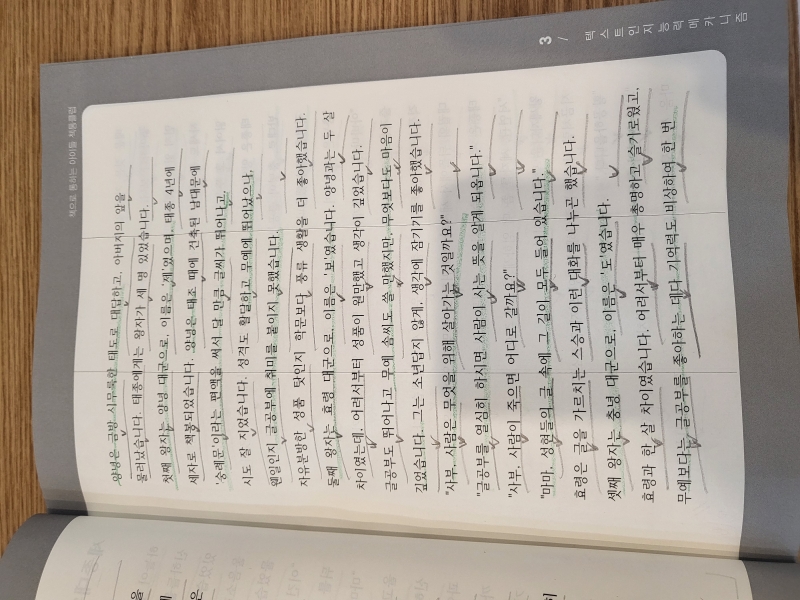 책으로 통하는 아이들 책통클럽
양녕은 금방 시무룩한 태도로 대답하고, 아버지의 앞을
물러났습니다. 태종에게는 왕자가 세 명 있었습니다.
첫째 왕자는 양녕 대군으로, 이름은 '제'였으며, 태종 4년에
세자로 책봉되었습니다. 양녕은 태조 때에 건축된 남대문에
'숭례문'이라는 편액을 써서 달 만큼 글씨가 뛰어나고,
시도 잘 지었습니다. 성격도 활달하고 무예에 뛰어났으나,
웬일인지 글공부에 취미를 붙이지 못했습니다.
자유분방한 성품 탓인지 학문보다 풍류 생활을 더 좋아했습니다.
둘째 왕자는 효령 대군으로, 이름은 '보'였습니다. 양녕과는 두 살
차이였는데, 어려서부터 성품이 원만했고 생각이 깊었습니다.
글공부도 뛰어나고 무예 솜씨도 쓸 만했지만, 무엇보다도 마음이
깊었습니다. 그는 소년답지 않게, 생각에 잠기기를 좋아했습니다.
"사부, 사람은 무엇을 위해 살아가는 것일까요?"
"글공부를 열심히 하시면 사람이 사는 뜻을 알게 되옵니다."
"사부, 사람이 죽으면 어디로 갈까요?"
"마마, 성현들의 글 속에, 그 길이 모두 들어 있습니다."
효령은 글을 가르치는 스승과 이런 대화를 나누곤 했습니다.
셋째 왕자는 충녕 대군으로, 이름은 '도'였습니다.
효령과 한 살 차이였습니다. 어려서부터 매우 총명하고 슬기로웠고,
무예보다는 글공부를 좋아하는 데다 기억력도 비상하여 한 번
3 / 텍스트인지능력메카니즘